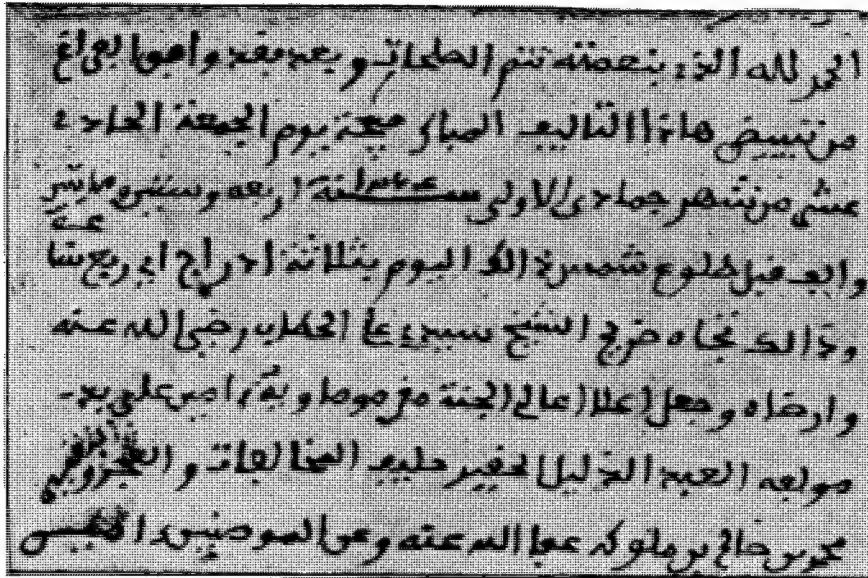 الحمد لله الذي بنعمته تتم الصلحات وبعد فقد وافق الفراغ
من تبييض هاذا التاليف المبارك صبيحة يوم الجمعة الحادي
عشر من شهر جمادى الاولى سنة اربعة وستين ومايتين
والف قبل طلوع شمس ذالك اليوم بثلاثة ادراج اي ربع ساعة
وذالك تجاه ضريح الشيخ سيدي علي الحطاب رضي الله عنه
وارضاه وجعل اعلا اعالي الجنة ماواه امين على يد
مولفه العبد الذليل الحقير حليف المخالفات والعجز
محمد بن صالح بن ملوكه عفا الله عنه وعن المومنين